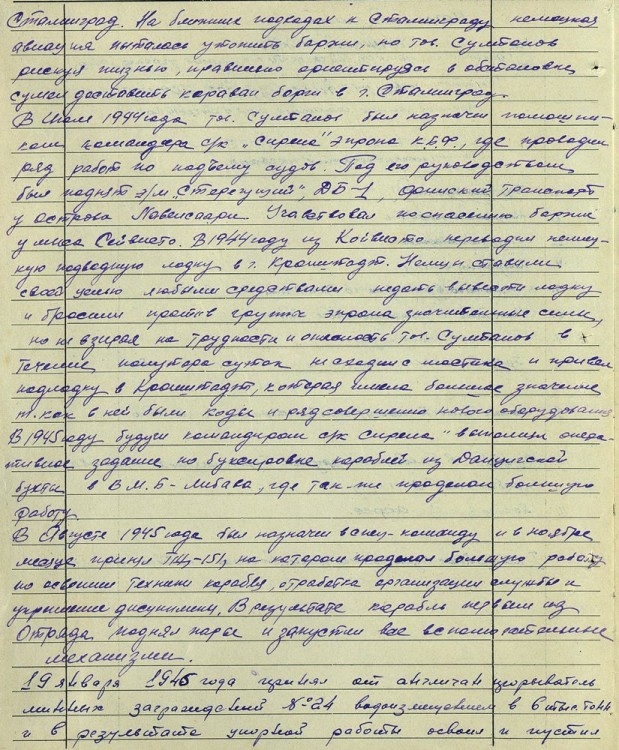 Сталинград. На ближних подходах к Сталинграду немецкая
авиация пыталась утопить баржи, но тов. Султанов
рискуя жизнью, правильно ориентируясь в обстановке
сумел доставить караван барж в г. Сталинград.
В Июле 1944 года тов. Султанов был назначен помошни-
ком командера с/к "Сирена" Эпрона К.Б.Ф., где проводил
ряд работ по подъему судов. Под его руководством
был поднят э/м "Стерегущий", ДБ-1, финский транспорт
у острова Лавенсаари. Участвовал по спасению баржи
у мыса Сейвисто. В 1944 году из Койвисто переводил немец-
кую подводную лодку в г. Кронштадт. Немцы ставили
своей целью любыми средствами не дать вывести лодку
и бросили против группы эпрона значительные силы,
но не взирая на трудности и опасность тов. Султанов в
течении полутора суток не сходил с мостика и привел
подлодку в Кронштадт, которая имела большое значение
т.как в ней были коды и ряд совершенно нового оборудования
В 1945 году будучи командиром с/к Сирена" выполнил опера-
тивное задание по буксировке кораблей из Данцигской
бухты в В.М.Б - Либава, где так-же проделал большую
работу.
В Августе 1945 года был назначен в спец-команду и в ноябре
месяце принял ТЩ-151, на котором проделал большую работу
по освоению техники корабля, отработка организации службы и
укрепление дисциплины, В результате корабль первым из
Отряда поднял пары и запустил все вспомогательные
механизмы.
19 января 1946 года принял от англичан прорыватель
минных заграждений №24 водоизмещением в 6 тыс. тонн
и в результате упорной работы освоил и пустил